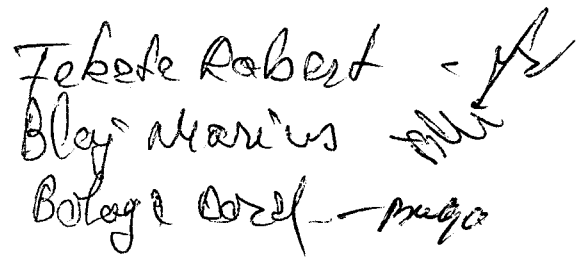 Fekete Robert -
Blaj Marius
Bologa Dorel -